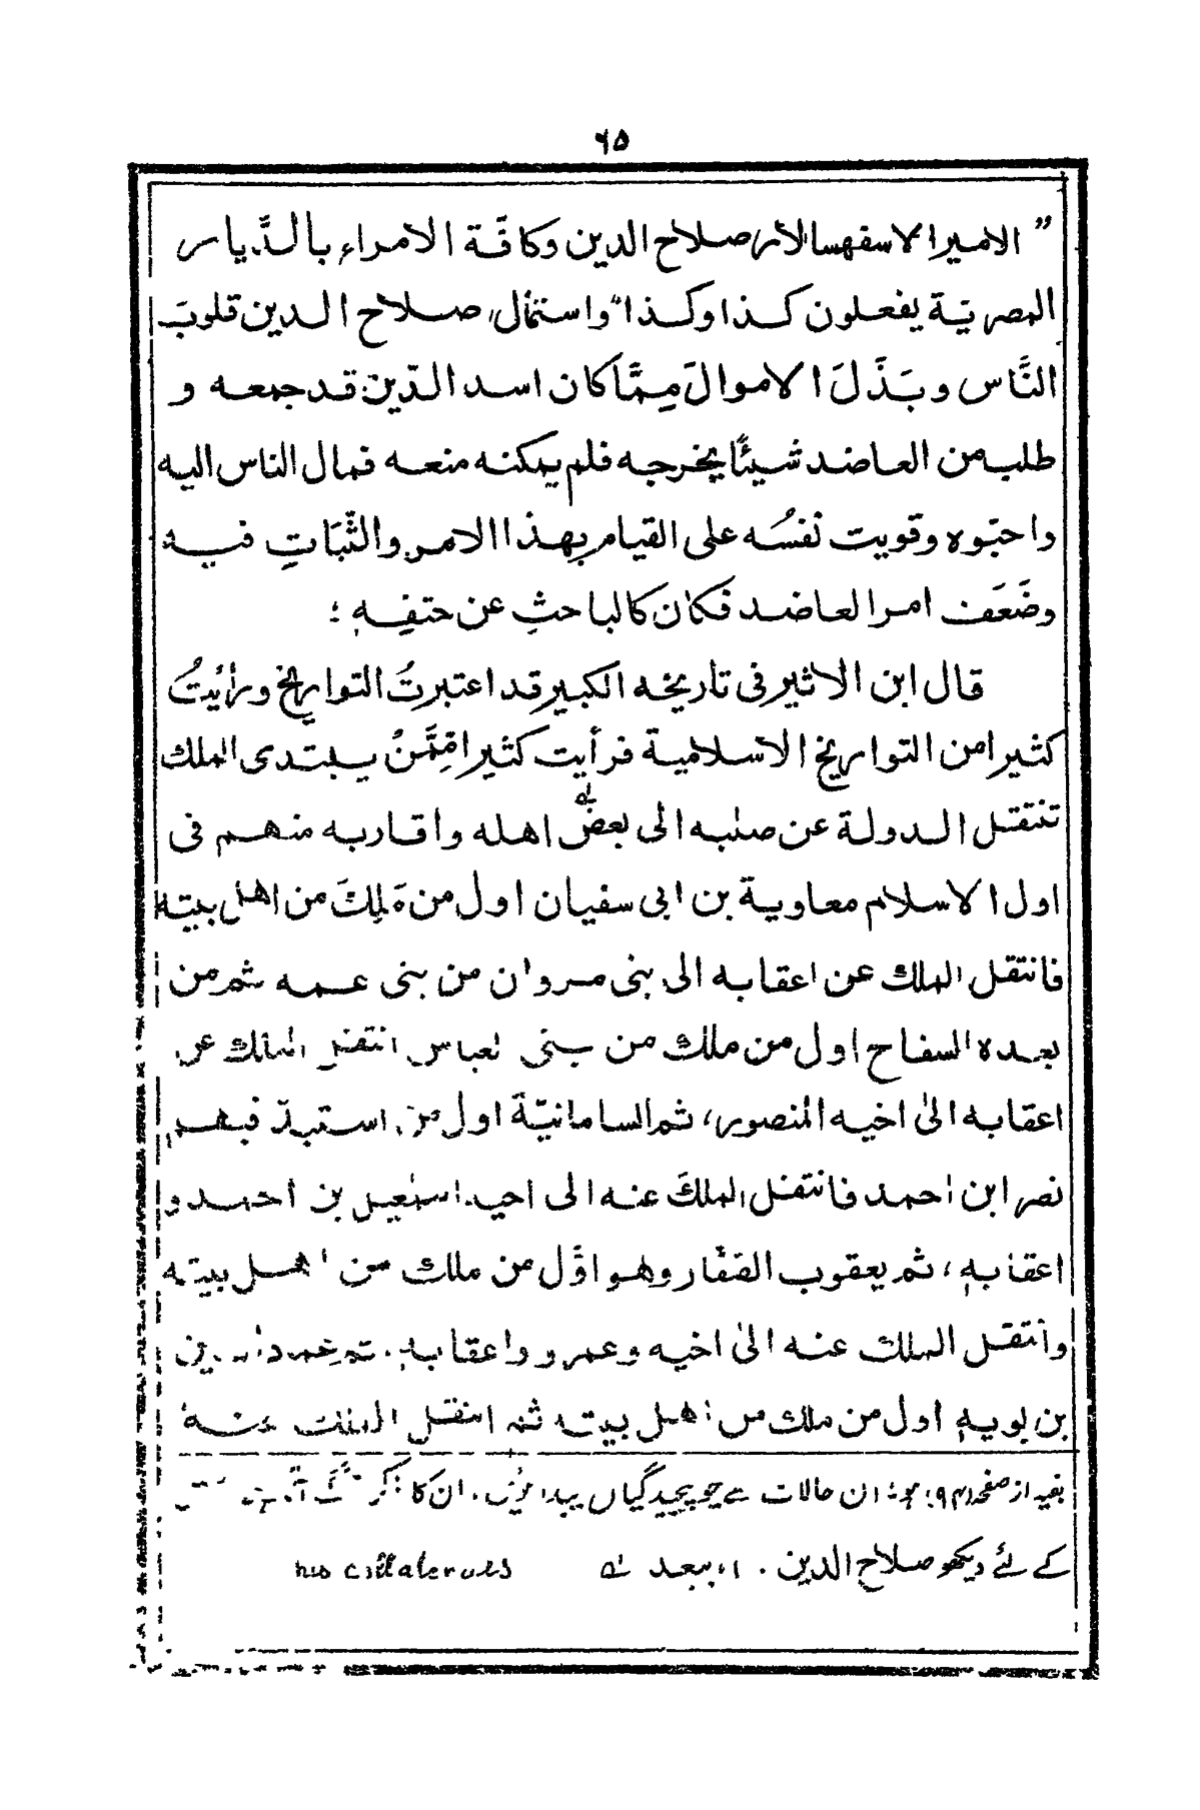 ٦٥
” الامير الاسفهسالار صلاح الدين وكافّة الامراء بالدّيار
المصريّة يفعلون كذا وكذا“ واستمال صلاح الدين قلوبَ
النَّاس وبَذَلَ الاموالَ مِمَّا كان اسد الدّين قد جمعه و
طلب من العاضد شيئًا يخرجه فلم يمكنه منعه فمال الناس اليه
واحبّوه وقويت نفسُه على القيام بهذا الامر والثّبَاتِ فيه
وضَعَف امر العاضد فكان كالباحثِ عن حتفِهٖ ؛
قال ابن الاثير فى تاريخه الكبير قد اعتبرتُ التواريخ ورأيتُ
كثيرا من التواريخ الاسلامية فرأيت كثيرا مِمَّنْ يبتدى الملك
تنتقل الدولة عن صلبه الى بعض لہ اهله واقاربه منهم فى
اول الاسلام معاوية بن ابى سفيان اول من مَلِكَ من اهل بيته
فانتقل الملك عن اعقابه الى بنى مروان من بنى عمه ثم من
بعده السفاح اول من ملك من بنى لعباس انتقل الملك عن
اعقابه الىٰ اخيه المنصور، ثم السامانيّة اول من استبدّ فيهم
نصر ابن احمد فانتقل الملكَ عنه الى اخيه اسمٰعيل بن احمد و
اعقابهٖ، ثم يعقوب الصفّار وهو اوّل من ملك من اهل بيته
وانتقل الملك عنه الىٰ اخيه وعمرو واعقابهٖ. ثم عماد الدين
بن بويهٖ اول من ملك من اهل بيته ثم انتقل الملك عنه
بقیہ از صفحہ ان حالات سے جو پیچیدگیاں پیدا ہوئیں. ان کا ذکر آگے
کے لئے دیکھو صلاح الدین . ۱، ببعد لہ his collaterals